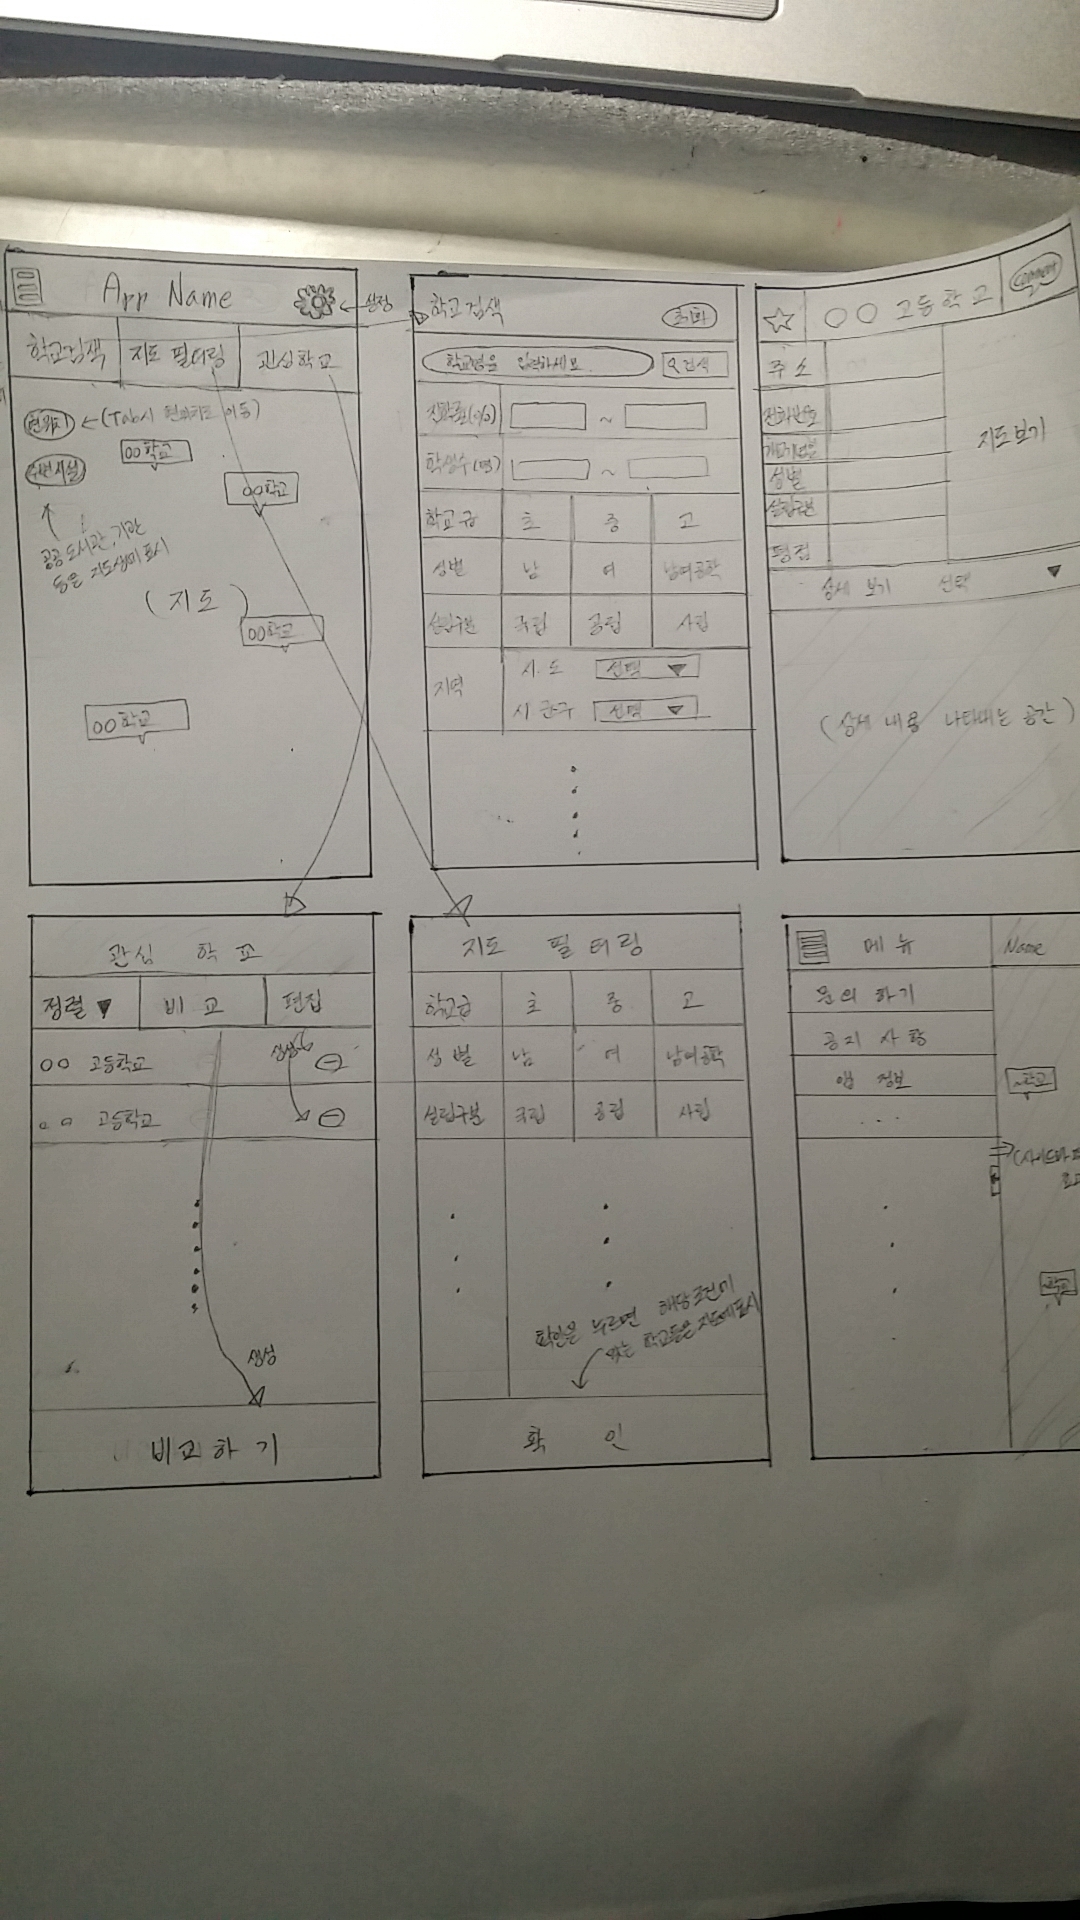 App Name
설정
학교검색 지도 필터링 관심학교
현위치 ←(Tab시 현위치로 이동)
OO학교
주변시설
OO학교
공공 도서관, 기관
등은 지도상에 표시
(지도)
OO학교
OO학교
학교검색 초기화
학교명을 입력하세요 검색
진학률(%) ~
학생수(명) ~
학교급 초 중 고
성별 남 여 남여공학
설립구분 국립 공립 사립
지역 시.도 선택 ▼
시군구 선택 ▼
☆ OO 고등학교 comment
주소
전화번호
지도보기
성별
설립구분
평점
상세 보기 선택 ▼
(상세 내용 나타내는 공간)
관심 학교
정렬 ▼ 비교 편집
생성
OO 고등학교
OO 고등학교
생성
비교하기
지도 필터링
학교급 초 중 고
성별 남 여 남여공학
설립구분 국립 공립 사립
확인을 누르면 해당조건에
맞는 학교들을 지도에 표시
확 인
메뉴 Name
문의 하기
공지 사항
앱 정보
...
학교
학교